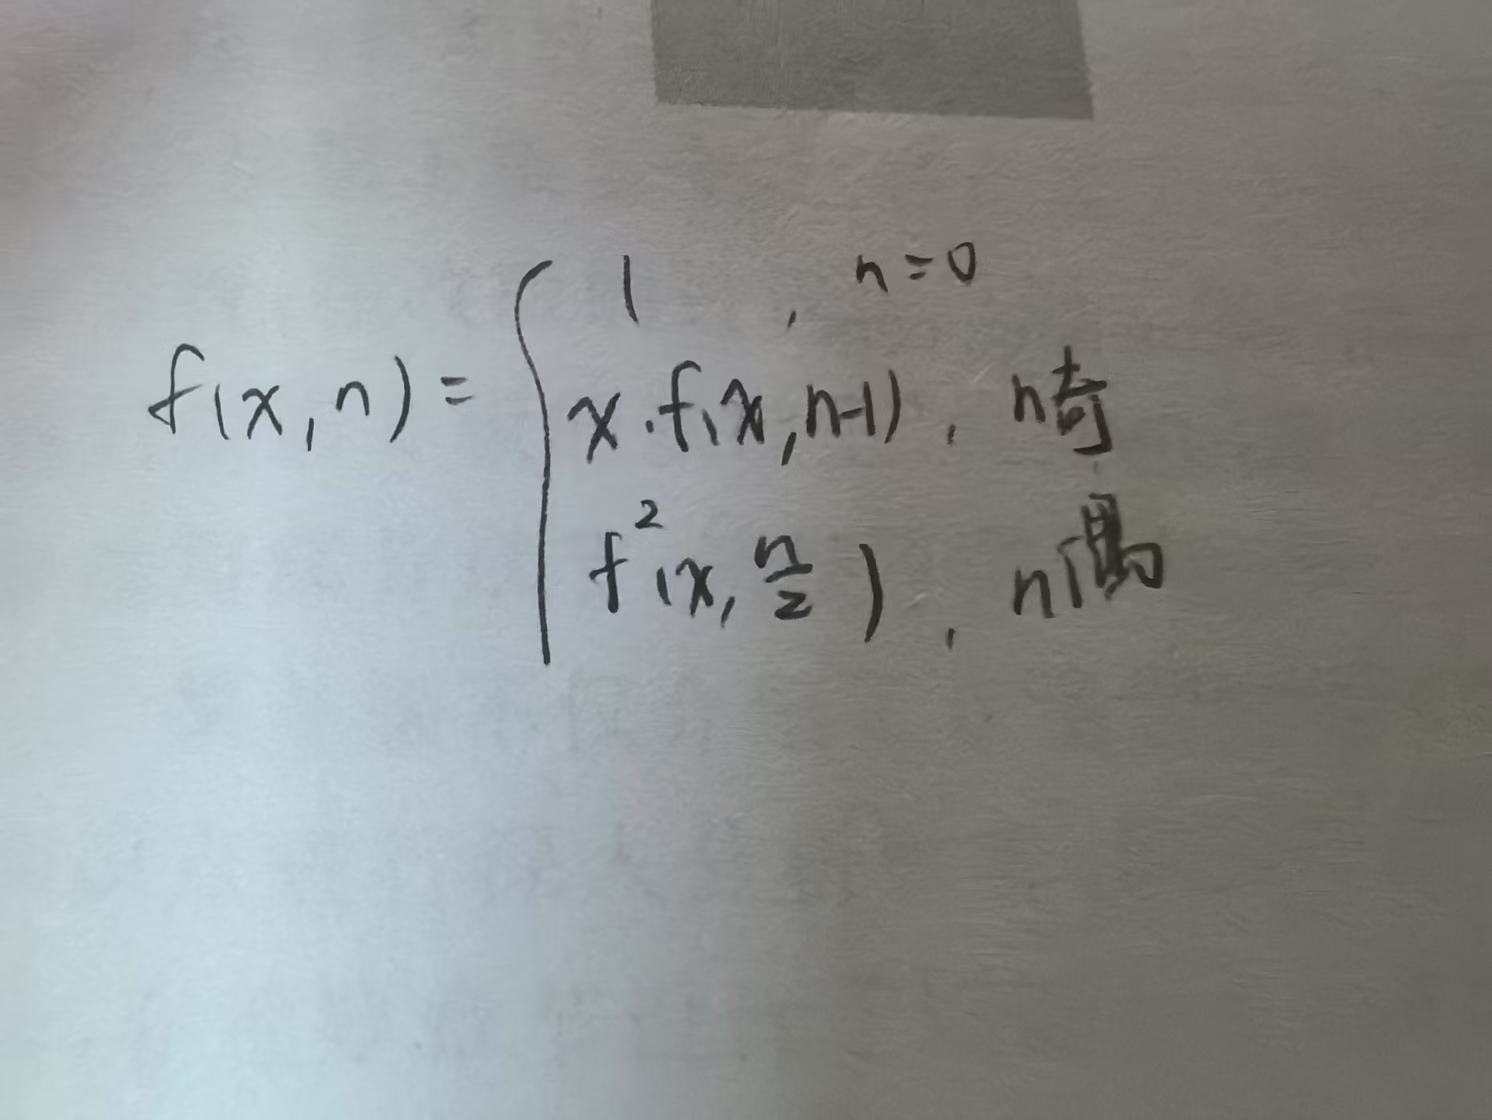 f(x,n)= { 1 , n=0
x·f(x,n-1) , n奇
f²(x, n/2) , n偶